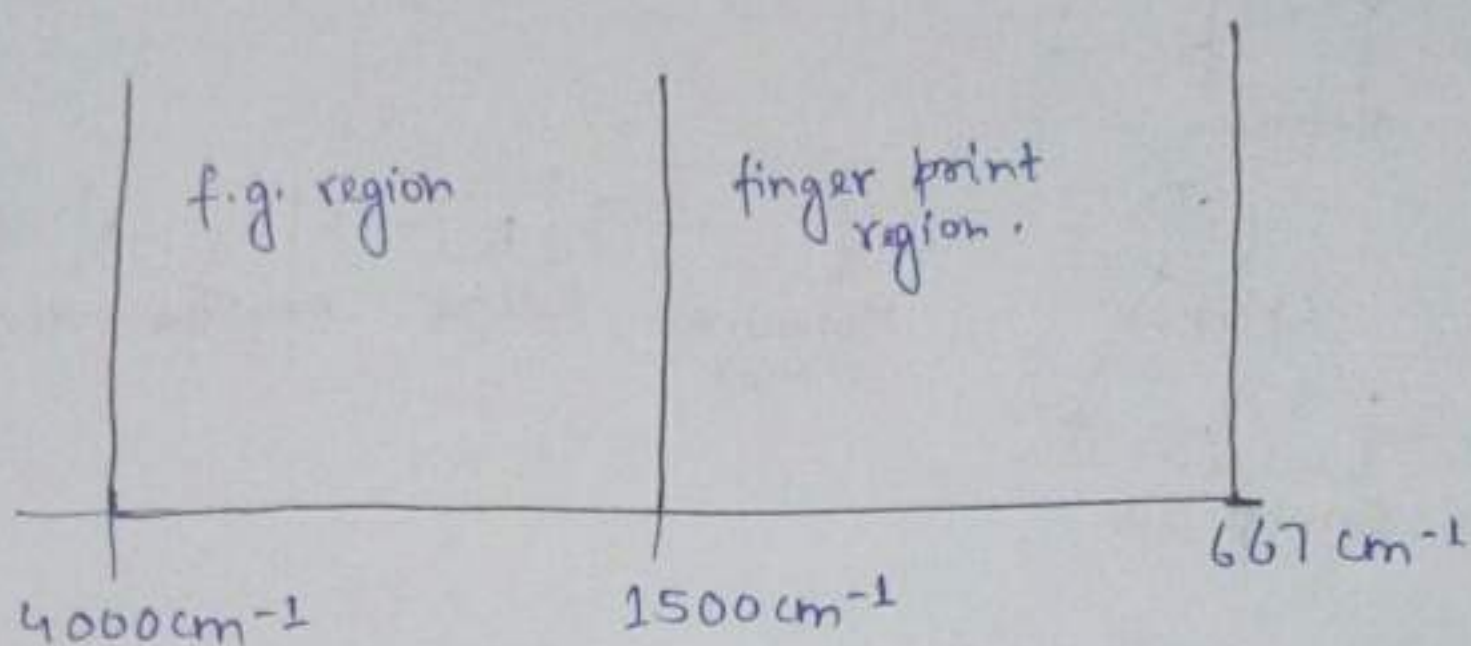 f.g. region
finger print
region.
4000cm-1
1500cm-1
667 cm-1